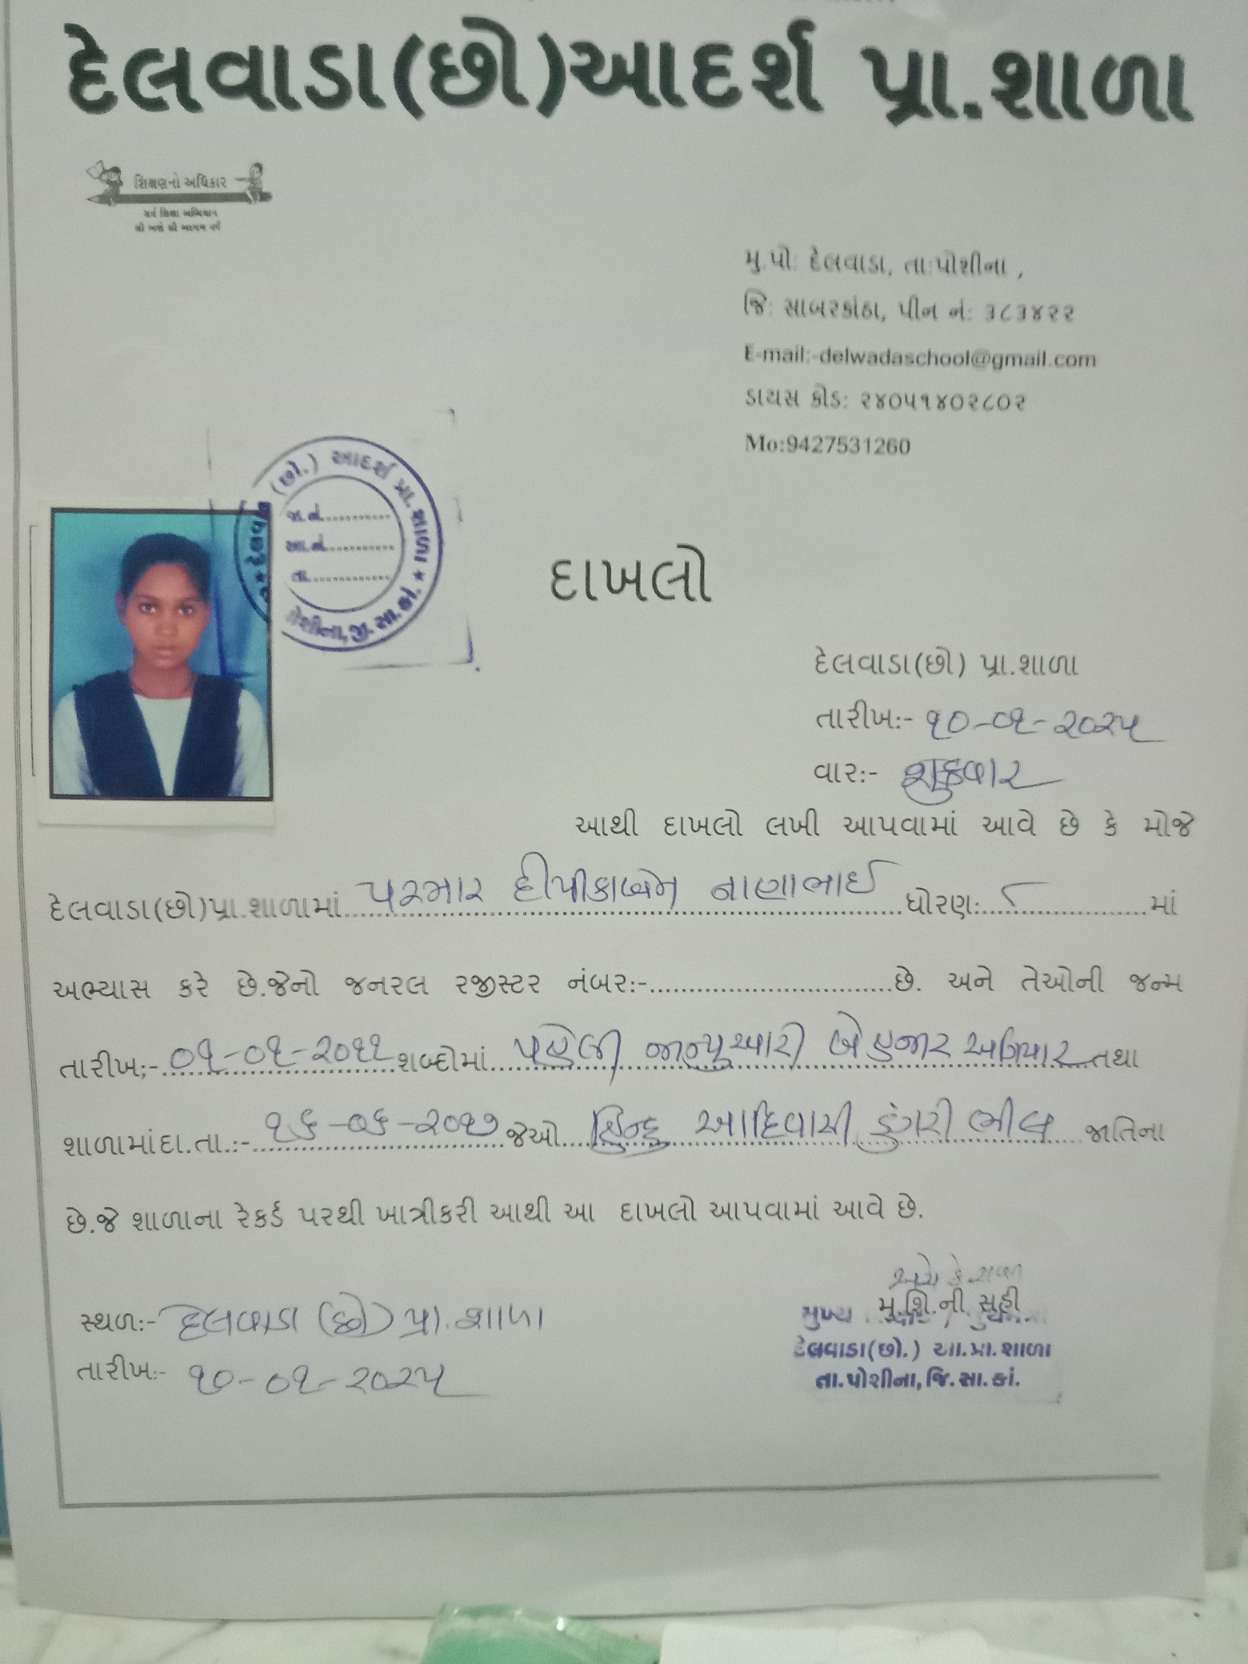 દેલવાડા(છો)આદર્શ પ્રા.શાળા
શિક્ષણનો અધિકાર
સર્વ શિક્ષા અભિયાન
સૌ ભણે સૌ આગળ વધે
મુ.પો: દેલવાડા, તા:પોશીના ,
જિ: સાબરકાંઠા, પીન નં: ૩૮૩૪૨૨
E-mail:-delwadaschool@gmail.com
ડાયસ કોડ: ૨૪૦૫૧૪૦૨૮૦૨
Mo:9427531260
(છો.) આદર્શ પ્રા. શાળા ★
જા.નં.
આ.નં.
તા.
પોશીના, જી. સા. કાં.
દાખલો
દેલવાડા(છો) પ્રા.શાળા
તારીખઃ- ૧૦-૦૧-૨૦૨૫
વારઃ- શુક્રવાર
આથી દાખલો લખી આપવામાં આવે છે કે મોજે
દેલવાડા(છો)પ્રા.શાળામાં પરમાર દીપીકાબેન નાણાભાઈ ધોરણઃ ૮ માં
અભ્યાસ કરે છે.જેનો જનરલ રજીસ્ટર નંબરઃ- છે. અને તેઓની જન્મ
તારીખ;- ૦૧-૦૧-૨૦૧૧ શબ્દોમાં પહેલી જાન્યુઆરી બે હજાર અગિયાર તથા
શાળામાંદા.તા.:- ૧૬-૦૬-૨૦૧૭ જેઓ હિન્દુ આદિવાસી ડુંગરી ભીલ જાતિના
છે.જે શાળાના રેકર્ડ પરથી ખાત્રીકરી આથી આ દાખલો આપવામાં આવે છે.
સ્થળઃ- દેલવાડા (છો) પ્રા.શાળા
તારીખઃ- ૧૦-૦૧-૨૦૨૫
મુ.શિ.ની સહી
મુખ્ય
દેલવાડા(છો.) આ.પ્રા.શાળા
તા.પોશીના,જિ.સા.કાં.